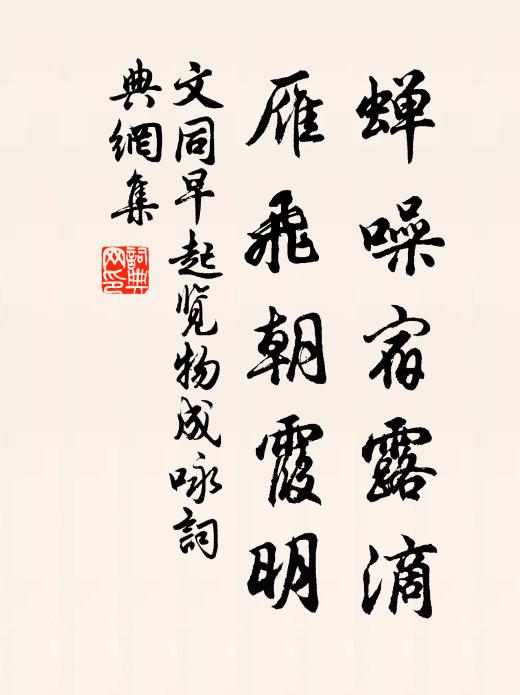 蝉噪宿露滴
雁飛朝霞明
文同早起览物成咏詞
典網集
詞典
网印